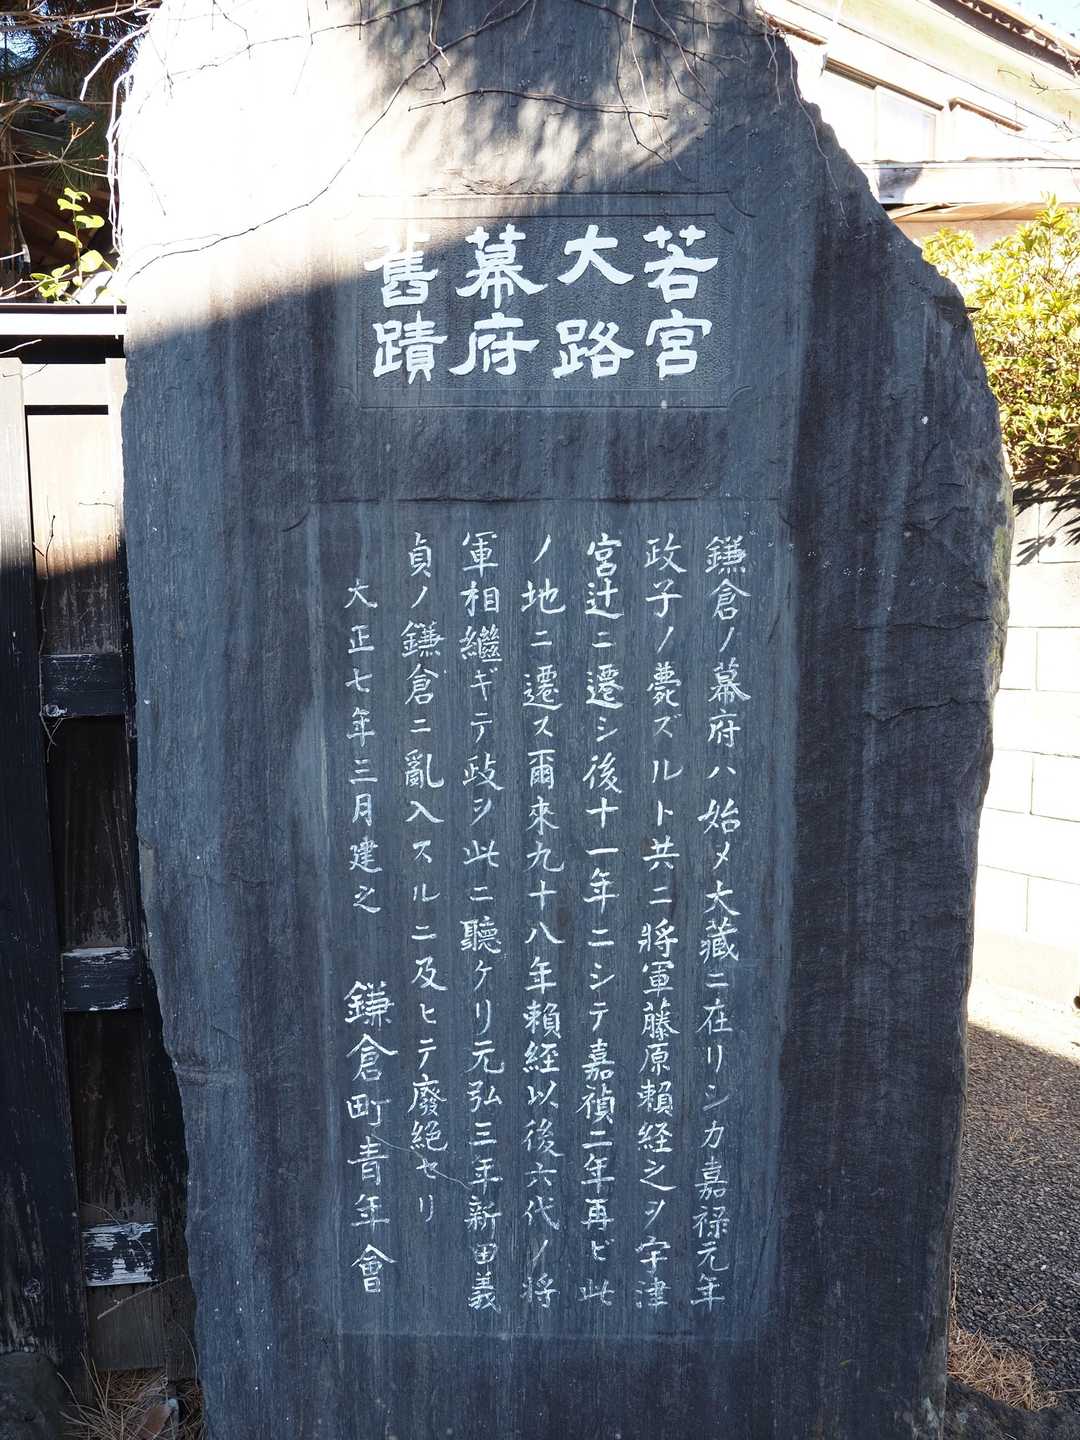 若宮
大路
幕府
舊蹟
鎌倉ノ幕府ハ始メ大藏ニ在リシカ嘉禄元年
政子ノ薨ズルト共ニ將軍藤原頼経之ヲ宇津
宮辻ニ遷シ後十一年ニシテ嘉禎二年再ビ此
ノ地ニ遷ス爾來九十八年頼経以後六代ノ將
軍相繼ギテ政ヲ此ニ聽ケリ元弘三年新田義
貞ノ鎌倉ニ亂入スルニ及ヒテ廢絶セリ
大正七年三月建之 鎌倉町青年會